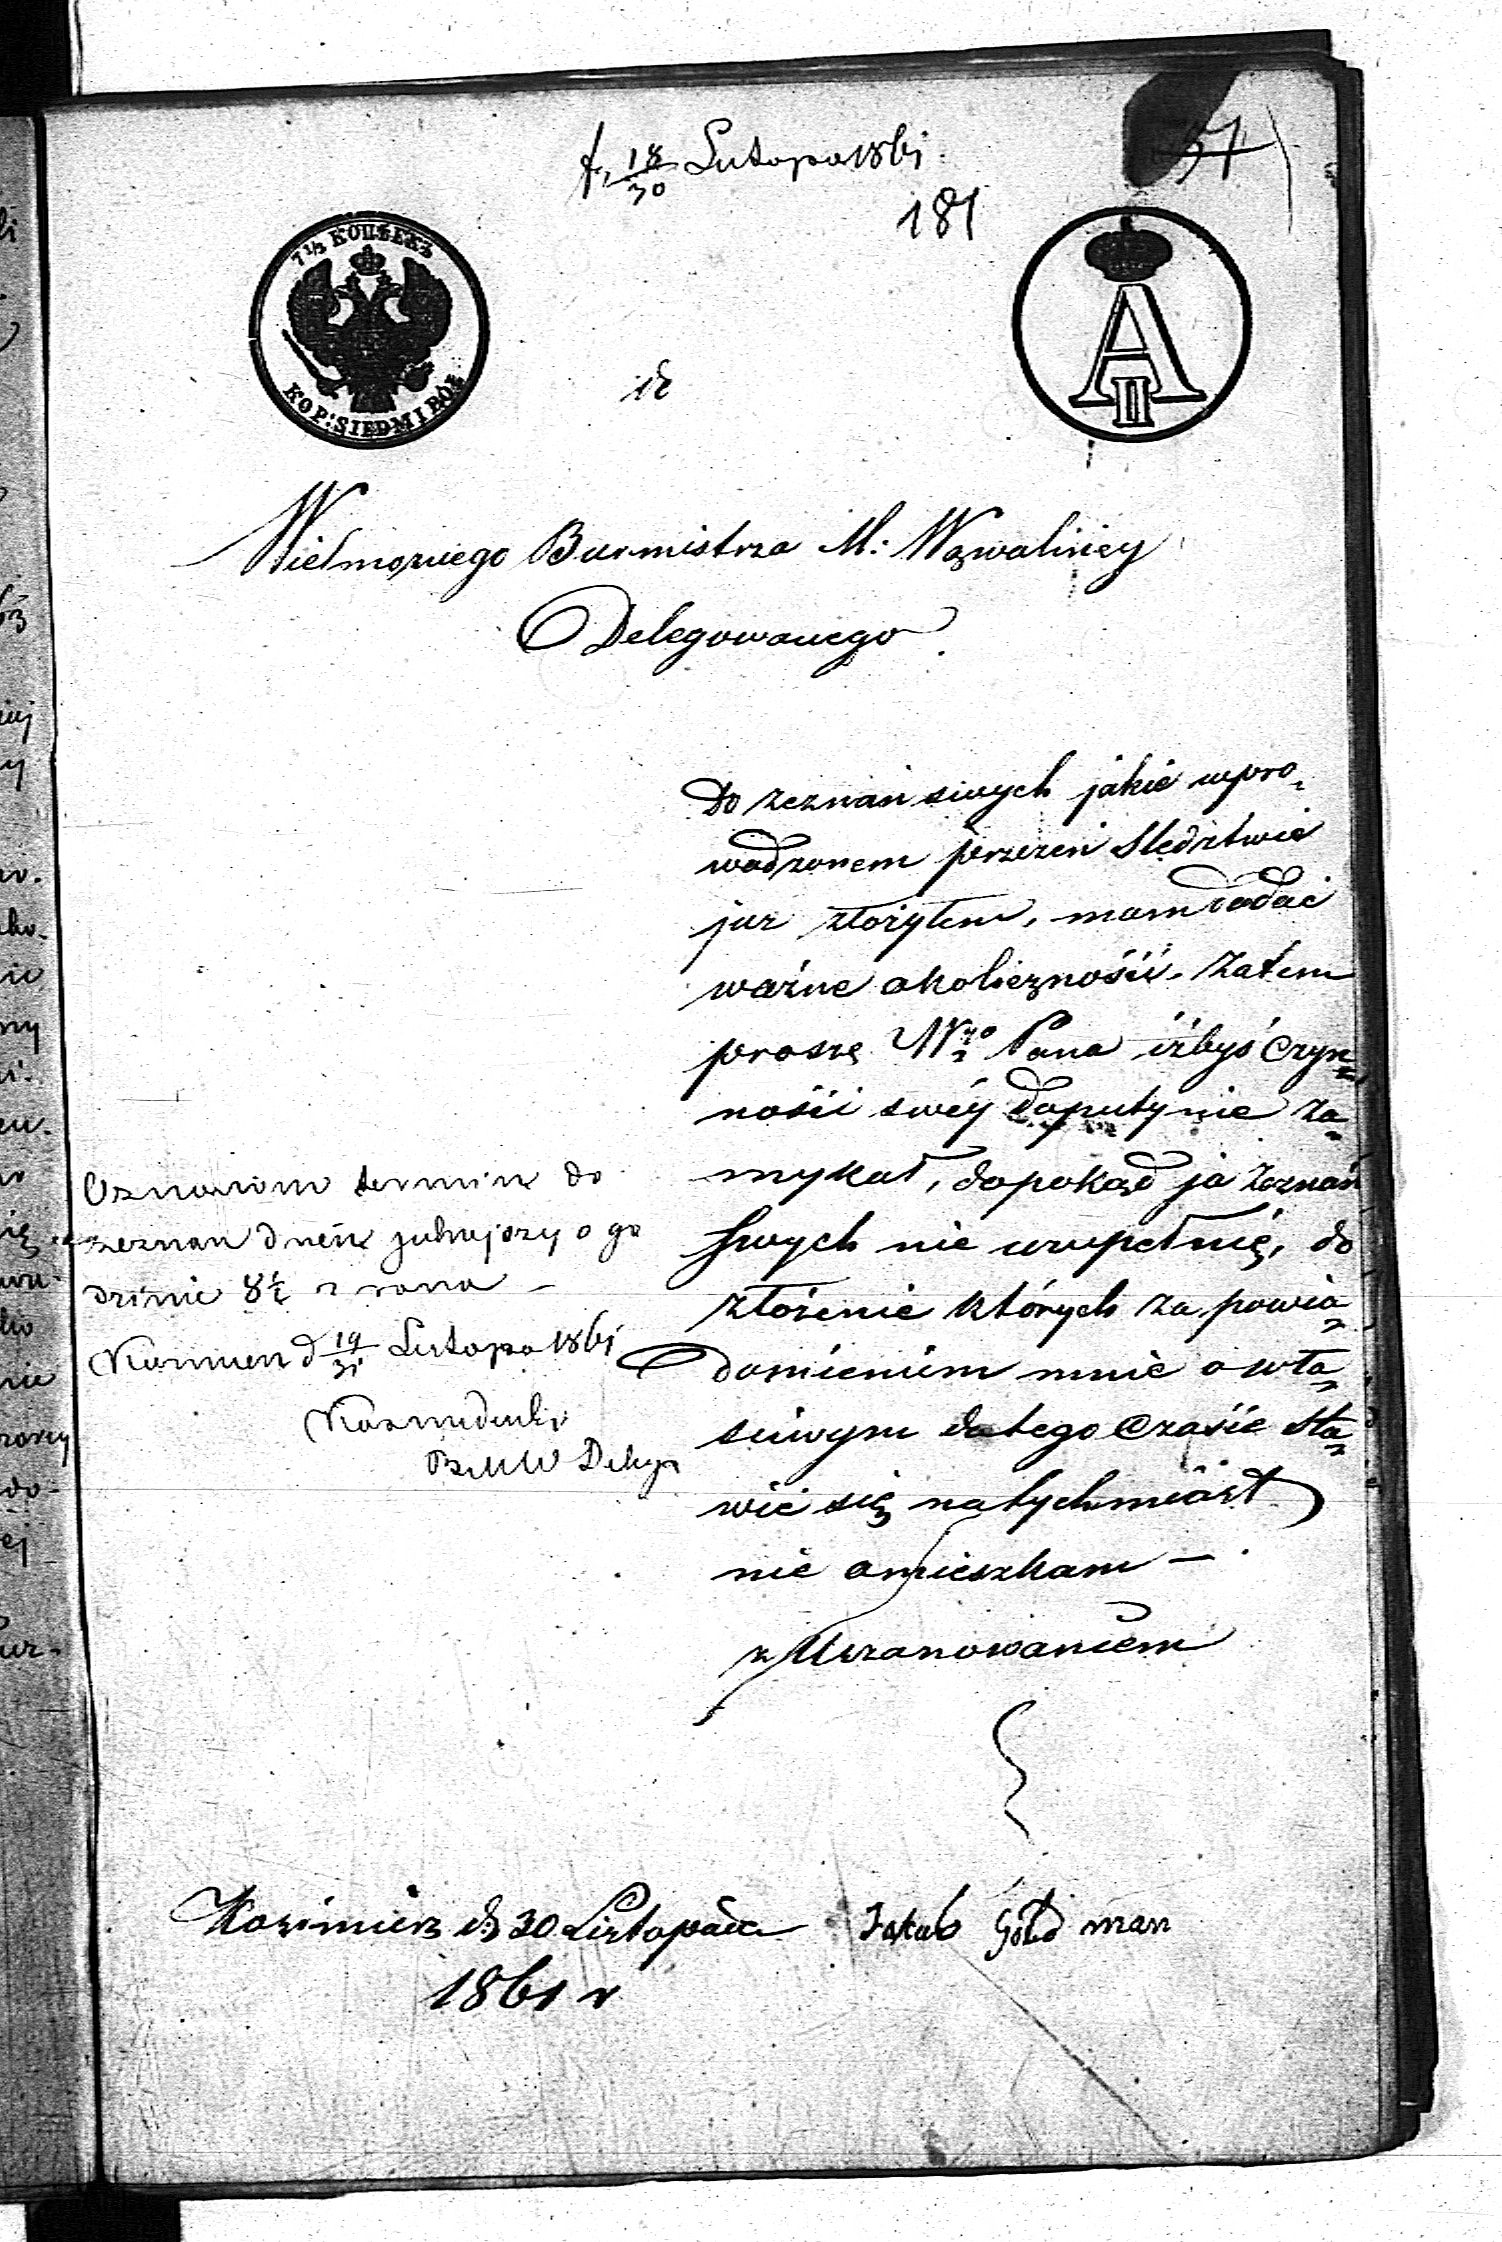 18/30 Listopa 1861
37
181
7½ КОПѢЕКЪ
KOP: SIEDM I PÓŁ
A II
do
Wielmożnego Burmistrza M: Wąwolnicy
Delegowanego
Do zeznań swych jakie wpro-
wadzonem przezeń Sledztwie
juz złożyłem, mam dodać
ważne okoliczności. Zatem
proszę Wgo Pana iżbyś Czyn-
ności swéy doputy nie za-
mykał, dopokąd ja zeznań
swych nie uzupełnię, do
złożenie których za powia-
domieniem mnie o wła-
sciwym do tego Czasie sta-
wić się natychmiast
nie omieszkam —
z Uszanowaniem
Oznaczam termin do
zeznan dzień jutrzejszy o go
dzinie 8½ z rana —
Kazimierz d 19/31 Listopa 1861
BMW Deleg
Kazimierz d 30 Listopada
1861 r
Jakub Goldman